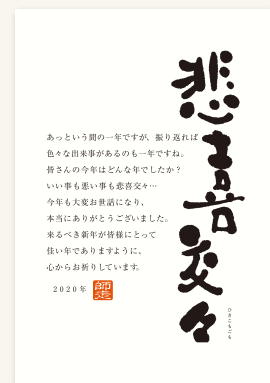 悲喜交々
ひきこもごも
あっという間の一年ですが、振り返れば
色々な出来事があるのも一年ですね。
皆さんの今年はどんな年でしたか？
いい事も悪い事も悲喜交々…
今年も大変お世話になり、
本当にありがとうございました。
来るべき新年が皆様にとって
佳い年でありますように、
心からお祈りしています。
2020年 師走